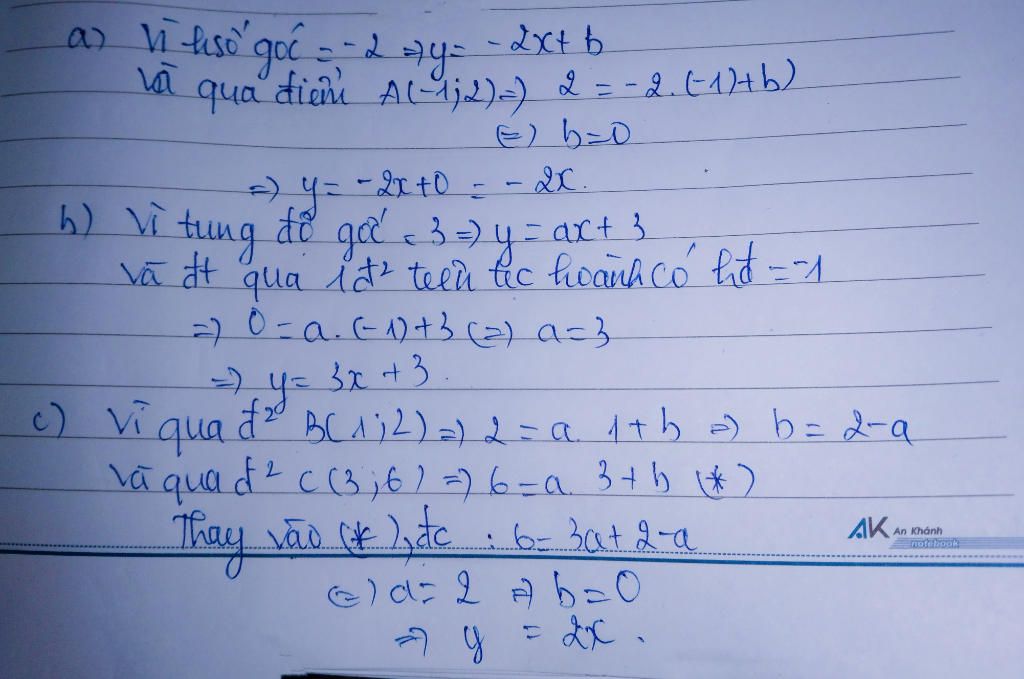 a) Vì hsố góc = -2 => y = -2x + b
Và qua điểm A(-1;2) => 2 = -2.(-1)+b)
<=> b=0
=> y = -2x+0 = -2x.
b) Vì tung độ gốc = 3 => y = ax + 3
Và đt qua 1 đ² trên tục hoành có hđ = -1
=> 0 = a.(-1)+3 <=> a=3
=> y = 3x + 3.
c) Vì qua đ² B(1;2) => 2 = a. 1 + b => b = 2-a
Và qua đ² C(3;6) => 6 = a. 3 + b (*)
Thay vào (*), đc : 6 = 3a + 2-a
AK An Khánh
notebook
<=> a = 2 => b = 0
=> y = 2x.